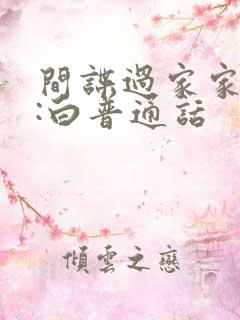 間諜過家家
:白普通話
傾雲之戀